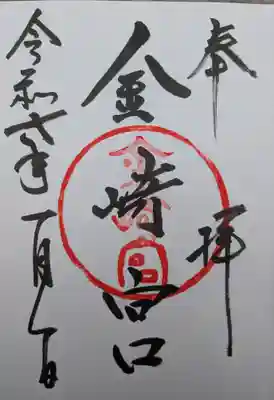 奉拝
金崎宮
令和六年一月八日